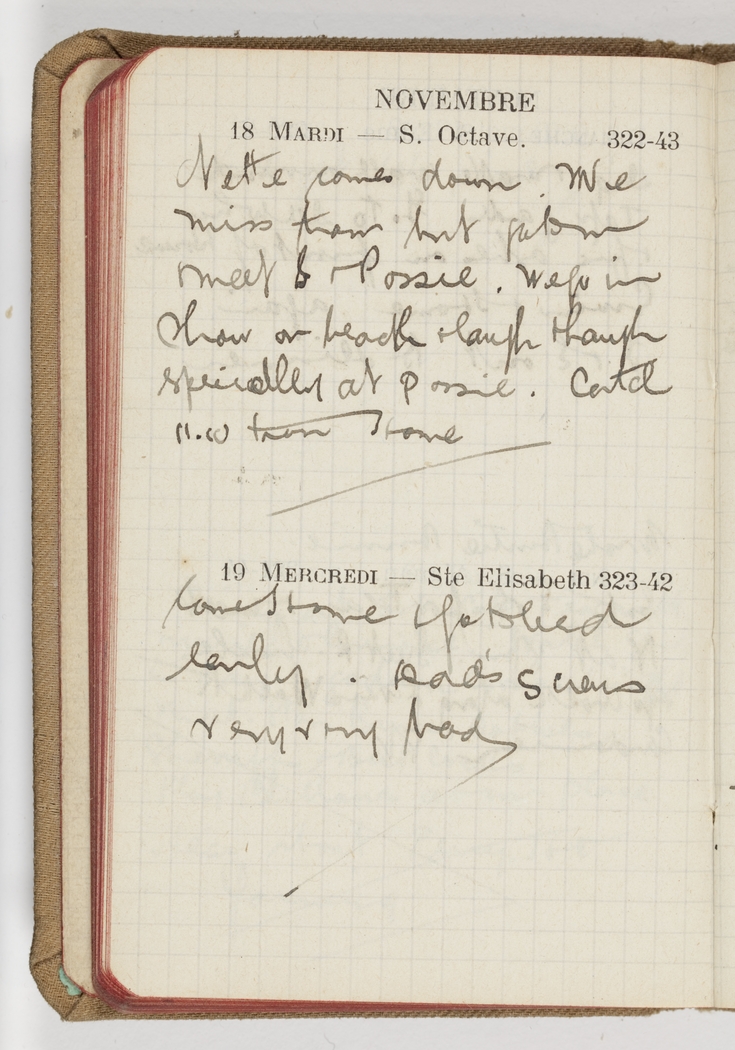 NOVEMBRE
18 MARDI — S. Octave. 322-43
Nettie comes down. We
miss tram but
meet Possie. We go in
on beach & laugh & laugh
specially at Possie. Catch
11.10 tram home
19 MERCREDI — Ste Elisabeth 323-42
Come home & go to bed
early. Dad's
very very bad